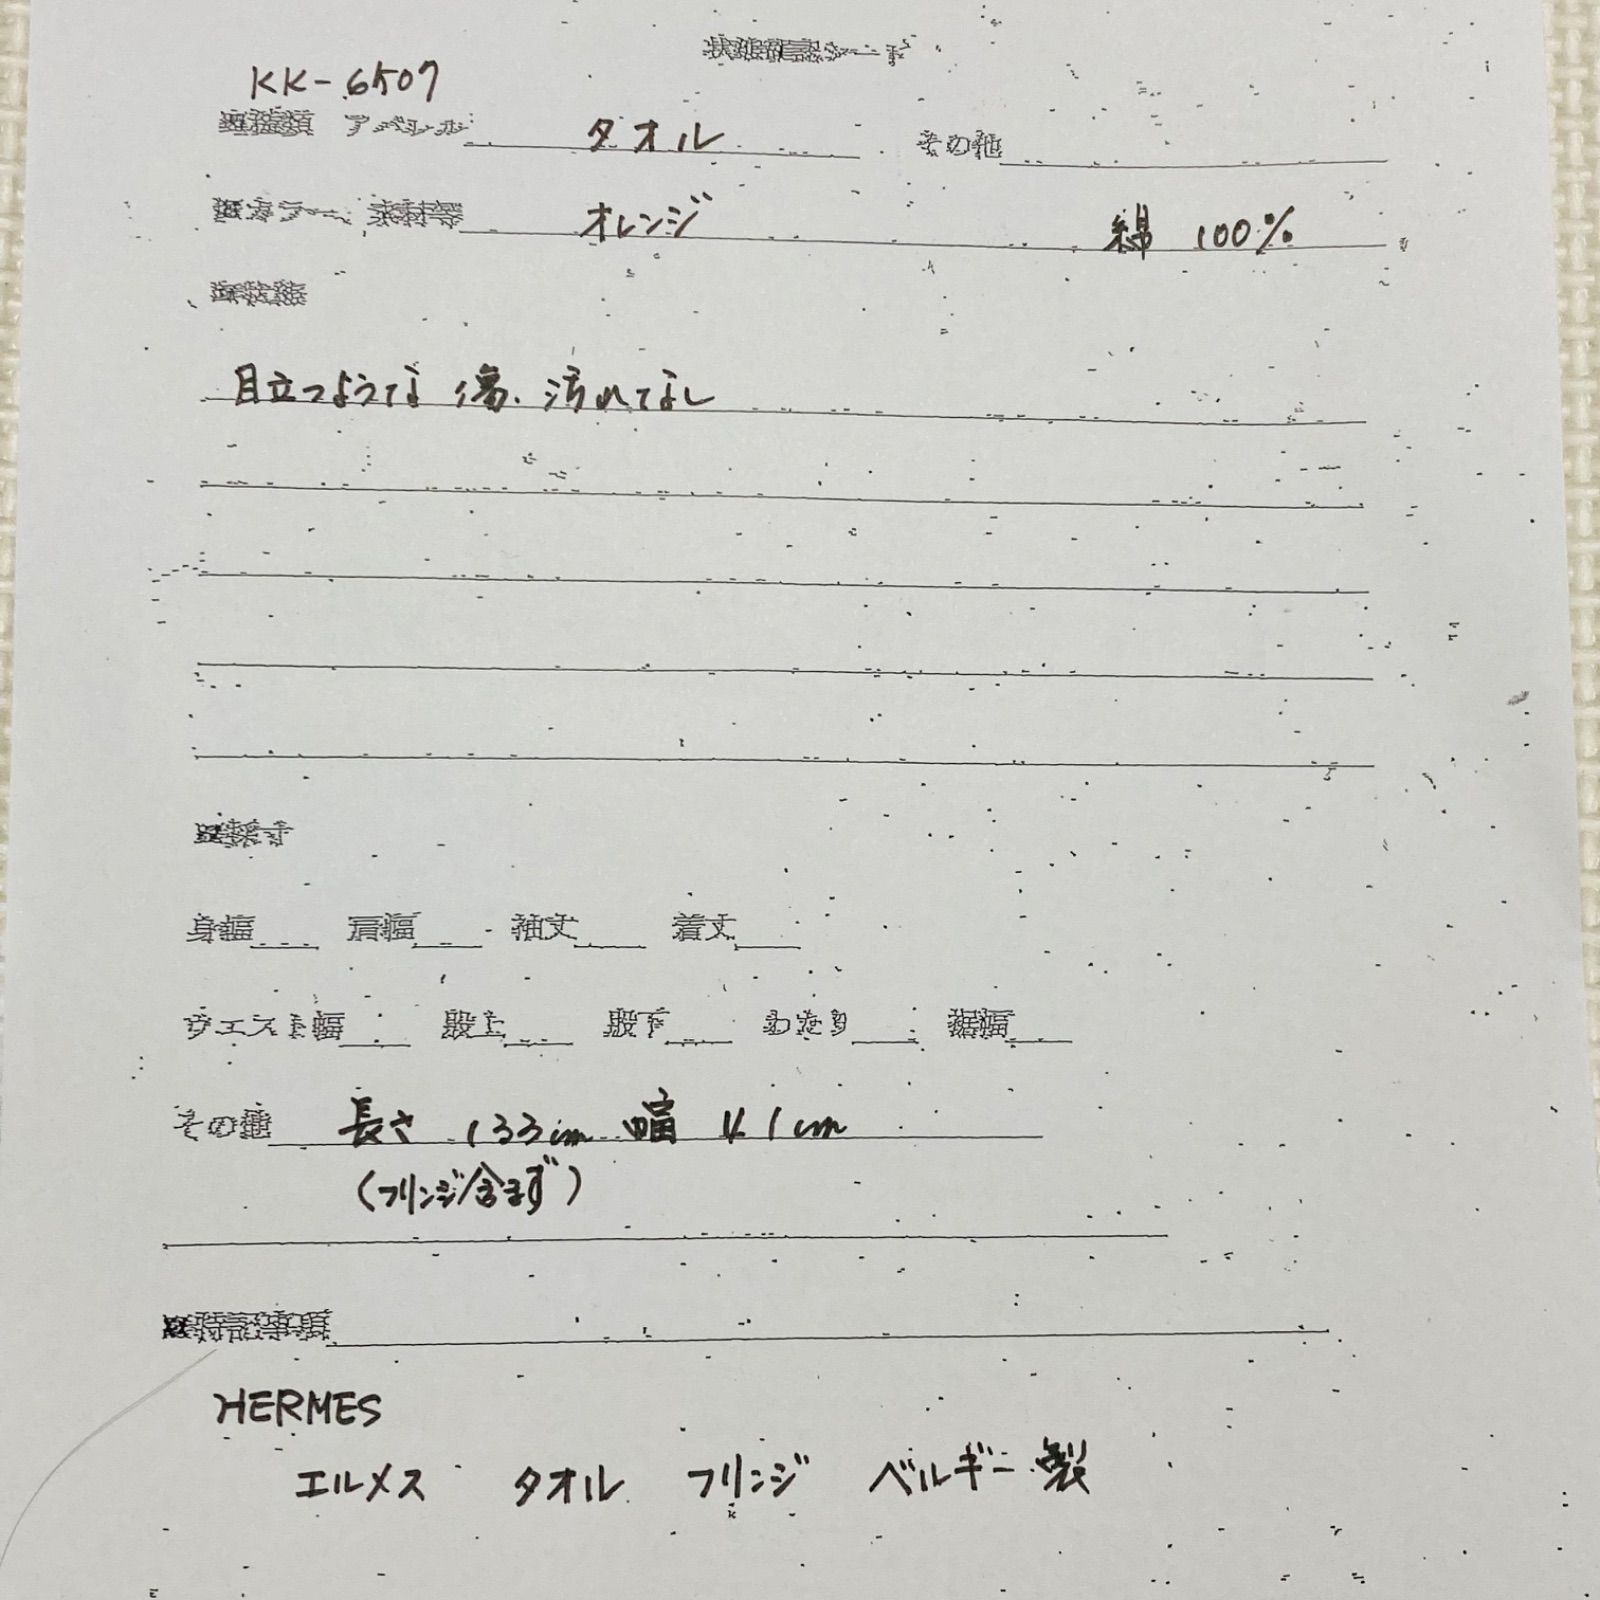 状態確認シート
KK-6507
■種類 アパレル タオル その他
■カラー、素材等 オレンジ 綿 100%
■状態
目立つような 傷、汚れてなし
■採寸
身幅 肩幅 袖丈 着丈
ウエスト幅 股上 股下 わたり 裾幅
その他 長さ 133cm 幅 41cm
(フリンジ含まず)
■特記事項
HERMES
エルメス タオル フリンジ ベルギー製